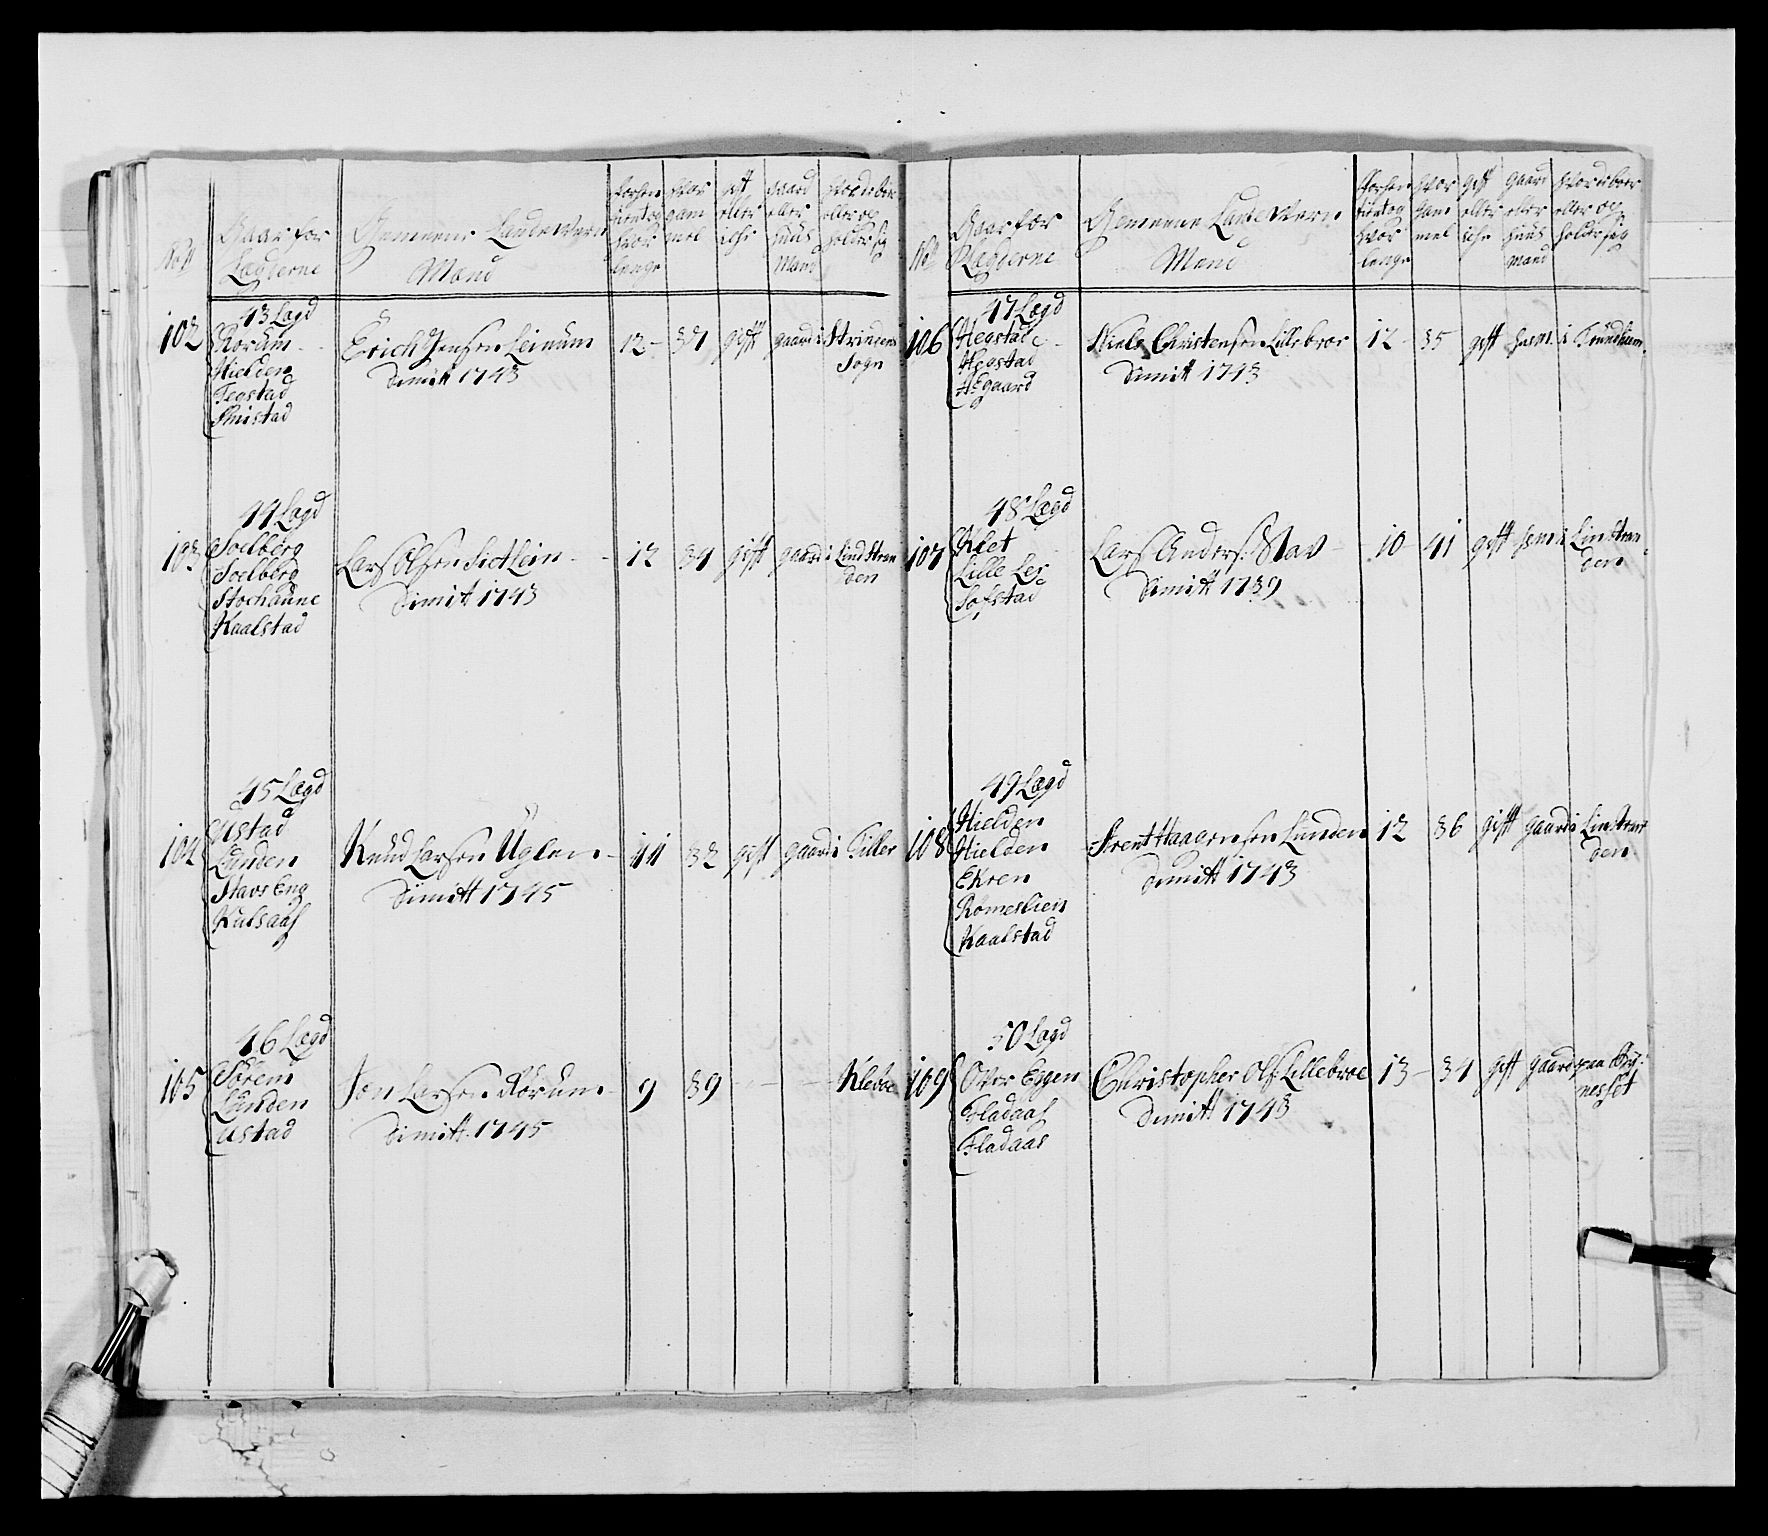 No
Gaar for
Lægderne
Gemeene Landeværn
Mænd
Hvor
gam
mel
gift
eller
ich
Gaard
eller
Huus
Mand
Hvor de boer
eller op
holder sig
102
43 Lægd
Rorum
Hielden
Tegstad
Smistad
Erich Jensen Leinum
Dimitt 1743
12 - 34 gift gaard i Strinden
Sogn
103
44 Lægd
Soelberg
Soelberg
Stochaune
Kaalstad
Lars Olsen
Dimitt 1743
12 34 gift gaard i Lind Stran
den
104
45 Lægd
Ustad
Lunden
Stavs Eng
Kulsaas
Knud Larsen Uglen
Dimitt 1745
11 32 gift gaard i Tiller
105
46 Lægd
Sørem
Lunden
Ustad
Jon Larsen Rorum
Dimitt 1745
9 39 - - - Klæboe
No
Gaar for
Lægderne
Gemeene Landeværn
Mænd
Hvor
gam
mel
gift
eller
iche
Gaard
eller
Huus
Mand
Hvor de boer
eller op
holder sig
106
47 Lægd
Hegstad
Hegstad
Aegaard
Niels Christensen Lillebroe
Dimitt 1743
12 - 35 gift husm. i Trundhiem
107
48 Lægd
Klet
Lille Ler
Sofstad
Lars Anders: Stav
Dimitt 1739
10 41 gift husm i Lin Stran
den
108
49 Lægd
Hielden
Hielden
Ekren
Romeslien
Kaalstad
Arent Haagensen Lunden
Dimitt 1743
12 36 gift gaard i Lin Stran
den
109
50 Lægd
Over Esgen
Fladaas
Fladaas
Christopher Ols. Lillebroe
Dimitt 1743
13 - 34 gift gaard paa Bÿ-
nesset